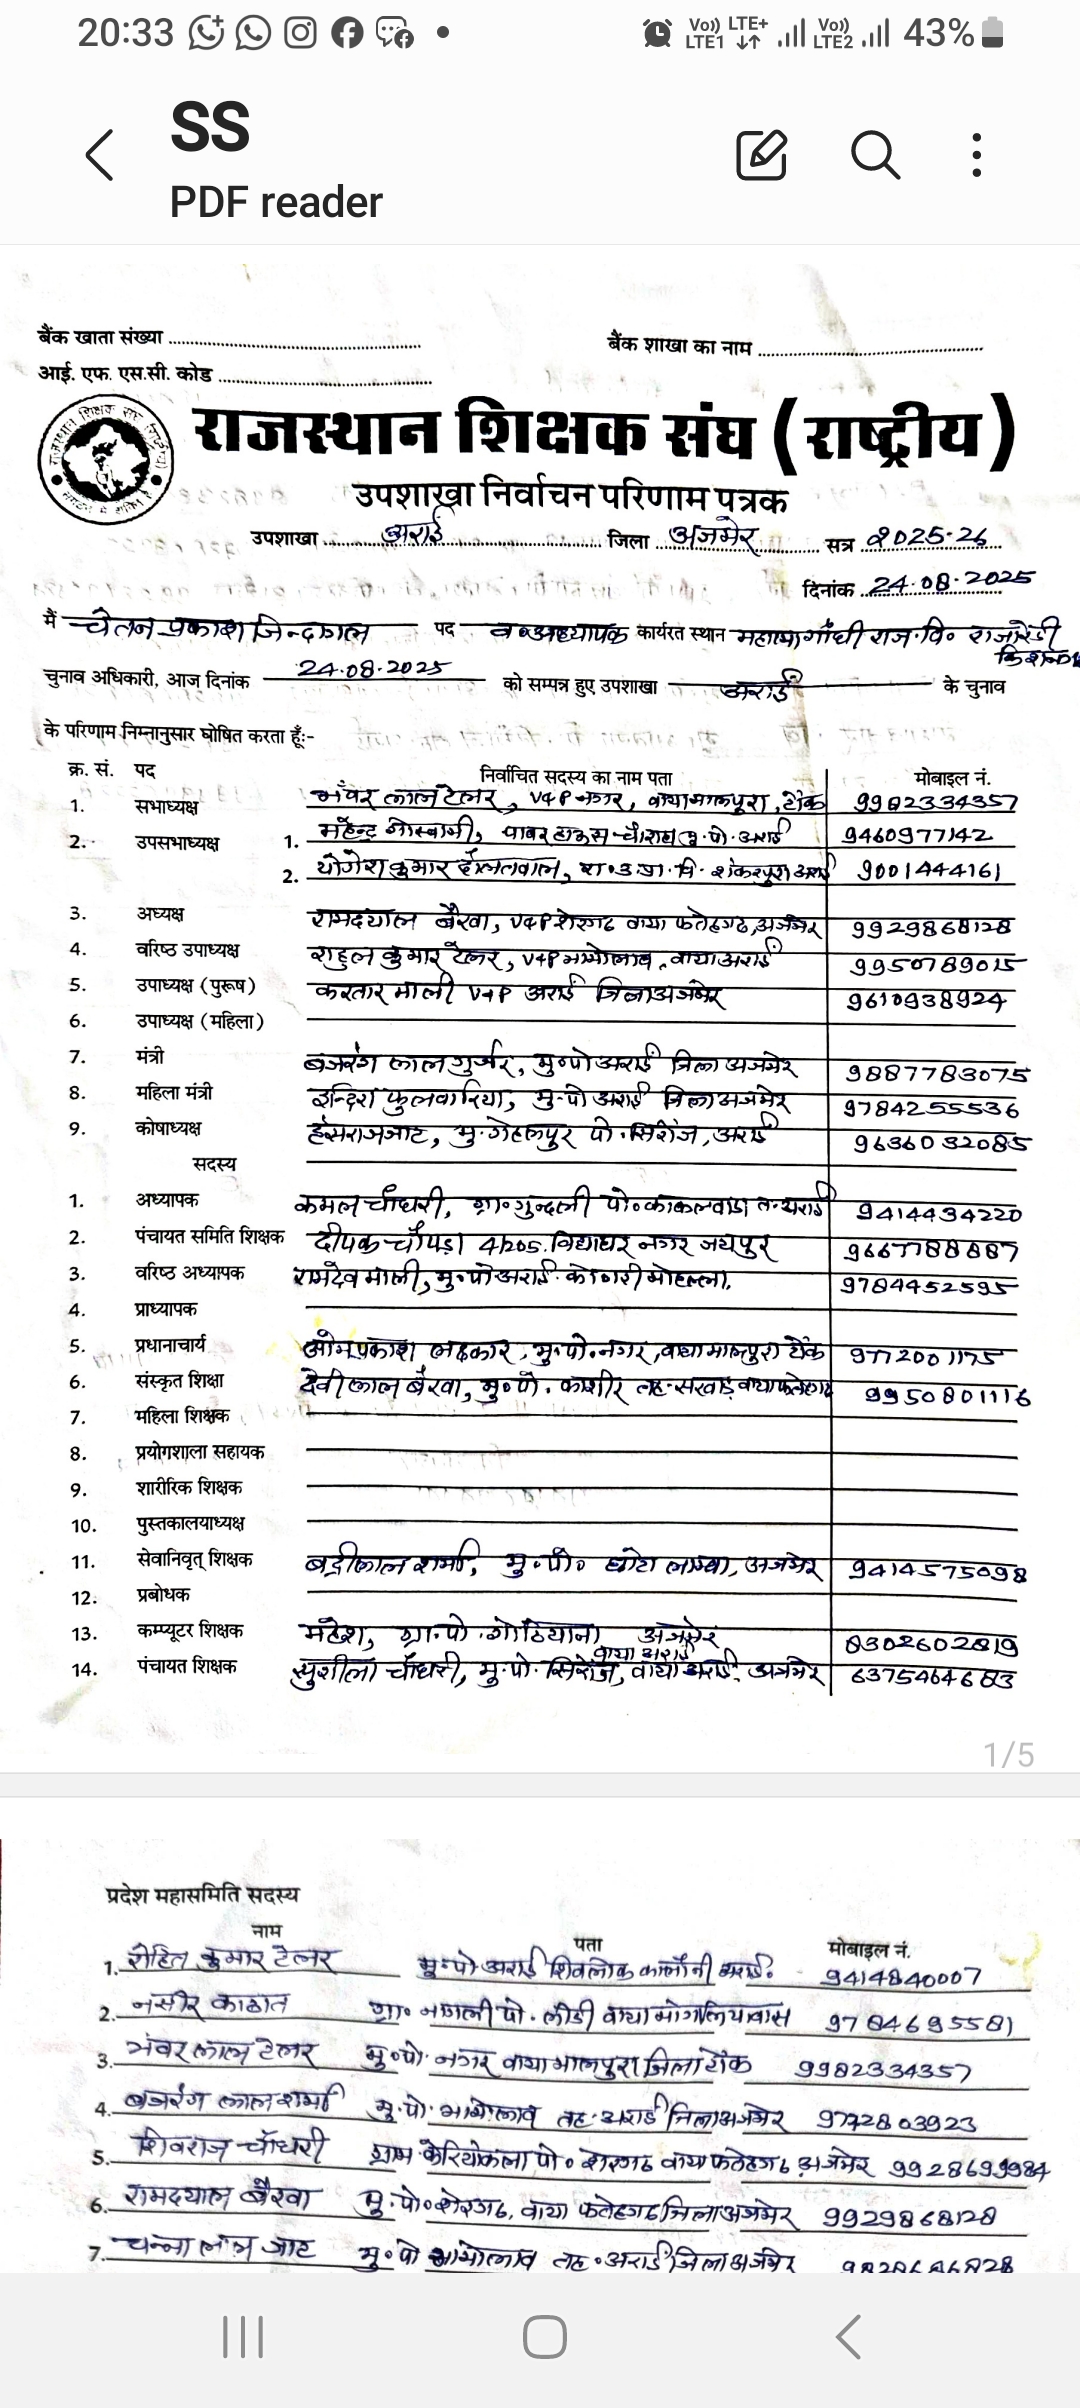 20:33
Vo)) LTE1 LTE+ Vo)) LTE2 43%
SS
PDF reader
बैंक खाता संख्या
बैंक शाखा का नाम
आई. एफ. एस.सी. कोड
राजस्थान शिक्षक संघ (राष्ट्रीय)
उपशाखा निर्वाचन परिणाम पत्रक
उपशाखा अराई जिला अजमेर सत्र 2025-26
दिनांक 24.08.2025
मैं चेतन प्रकाश पद व॰अध्यापक कार्यरत स्थान महात्मा गाँधी राज.वि॰
चुनाव अधिकारी, आज दिनांक 24.08.2025 को सम्पन्न हुए उपशाखा अराई के चुनाव
के परिणाम निम्नानुसार घोषित करता हूँ:-
क्र. सं. पद निर्वाचित सदस्य का नाम पता मोबाइल नं.
1. सभाध्यक्ष भंवर लाल टेलर, V&P नगर, वाया मालपुरा, टोंक 9982334357
2. उपसभाध्यक्ष 1. महेन्द्र गोस्वामी, पावर हाउस चौराहा मु.पो. अराई 9460977142
2. योगेश कुमार अराई 9001444161
3. अध्यक्ष रामदयाल बैरवा, V&P शेरगढ वाया फतेहगढ, अजमेर 9929868128
4. वरिष्ठ उपाध्यक्ष राहुल कुमार टेलर, V&P भामोलाव, वाया अराई 9950789015
5. उपाध्यक्ष (पुरूष) करतार माली V&P अराई जिला अजमेर 9610938924
6. उपाध्यक्ष (महिला)
7. मंत्री बजरंग लाल गुर्जर, मु॰पो अराई जिला अजमेर 9887783075
8. महिला मंत्री इन्दिरा फुलवारिया, मु.पो अराई जिला अजमेर 9784255536
9. कोषाध्यक्ष हंसराज जाट, मु. पो. सिरोंज, अराई 9636032085
सदस्य
1. अध्यापक कमल चौधरी, ग्रा॰ गुन्दली पो॰ काकलवाडा त. अराई 9414434220
2. पंचायत समिति शिक्षक दीपक चौपड़ा 4/205 विद्याधर नगर जयपुर 9667788887
3. वरिष्ठ अध्यापक रामदेव माली, मु॰पो अराई मोहल्ला. 9784452595
4. प्राध्यापक
5. प्रधानाचार्य ओमप्रकाश लक्षकार, मु.पो. नगर, वाया मालपुरा टोंक 9772001175
6. संस्कृत शिक्षा देवी लाल बैरवा, मु॰पो. 9950801116
7. महिला शिक्षक
8. प्रयोगशाला सहायक
9. शारीरिक शिक्षक
10. पुस्तकालयाध्यक्ष
11. सेवानिवृत् शिक्षक बद्रीलाल शर्मा, मु.पो॰ छोटा लाम्बा, अजमेर 9414575098
12. प्रबोधक
13. कम्प्यूटर शिक्षक महेश, ग्रा.पो. गोठियाना वाया अराई अजमेर 8302602819
14. पंचायत शिक्षक सुशीला चौधरी, मु.पो. सिरोंज, वाया अराई, अजमेर 6375464683
1/5
प्रदेश महासमिति सदस्य
नाम पता मोबाइल नं.
1. रोहित कुमार टेलर मु॰पो अराई शिवलोक कालोनी अराई. 9414840007
2. नसीर काठात पो. लीडी वाया मांगलियावास 9784695581
3. भंवर लाल टेलर मु॰पो. नगर वाया मालपुरा जिला टोंक 9982334357
4. बजरंग लाल शर्मा मु.पो. भामोलाव तह. अराई जिला अजमेर 9772803923
5. शिवराज चौधरी ग्राम पो॰ शेरगढ वाया फतेहगढ अजमेर 9928699984
6. रामदयाल बैरवा मु.पो॰ शेरगढ, वाया फतेहगढ जिला अजमेर 9929868128
7. चन्ना लाल जाट मु॰पो भामोलाव तह॰ अराई जिला अजमेर